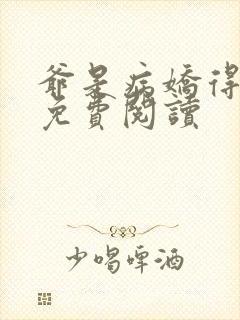 爺是病嬌得
免費閱讀
少喝啤酒